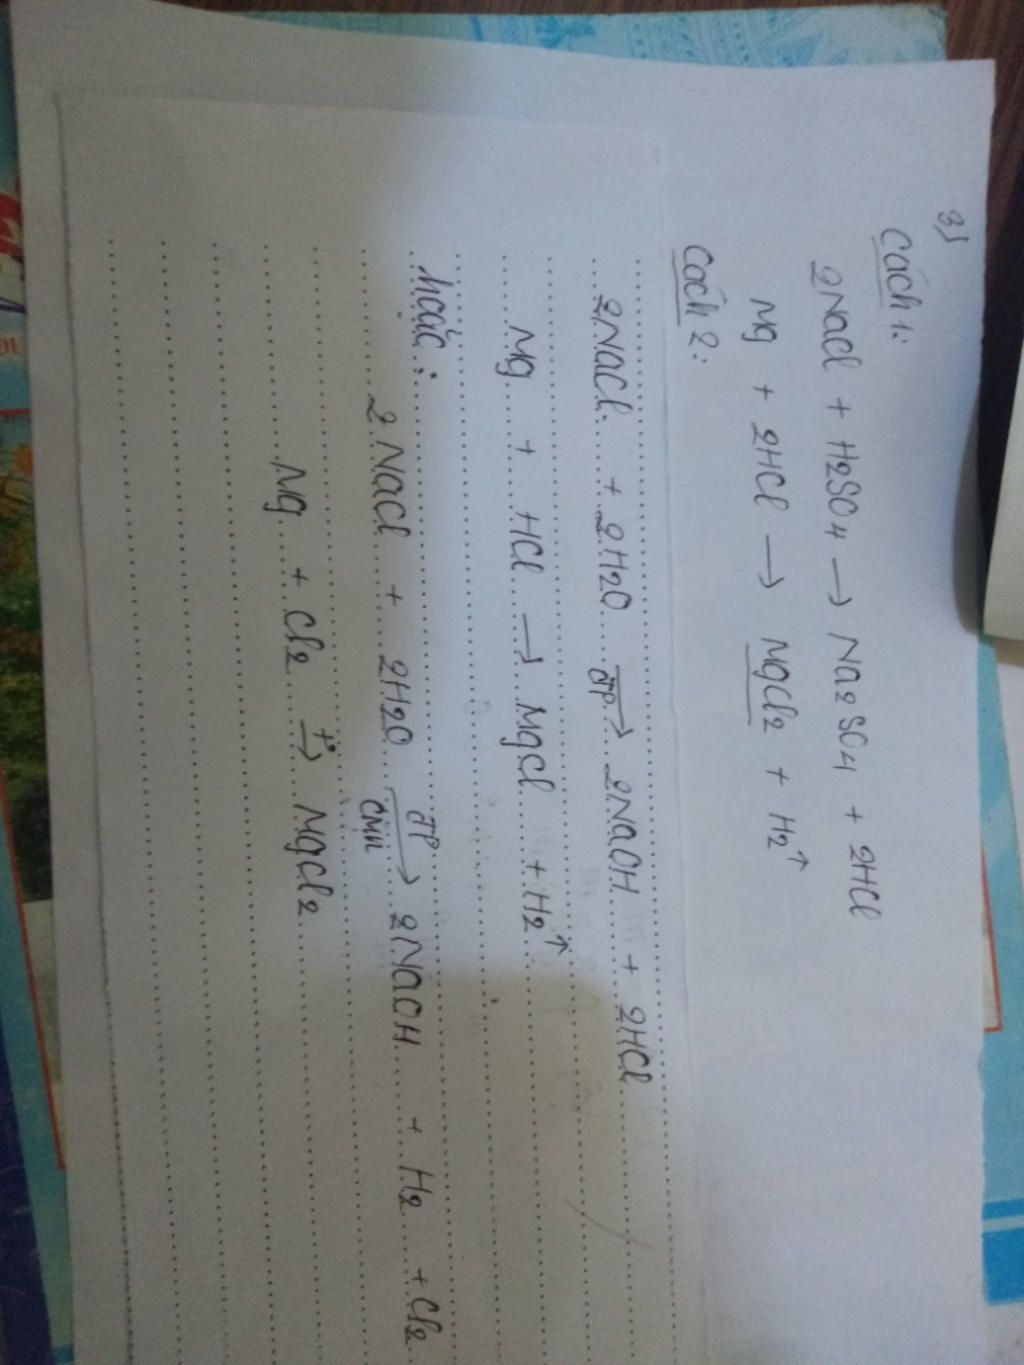 3)
Cách 1:
2NaCl + H2SO4 → Na2SO4 + 2HCl
Mg + 2HCl → MgCl2 + H2↑
Cách 2:
2NaCl + 2H2O →đp 2NaOH + 2HCl
Mg + HCl → MgCl + H2↑
hoặc:
2NaCl + 2H2O →đp cmn 2NaOH + H2 + Cl2
Mg + Cl2 →t° MgCl2